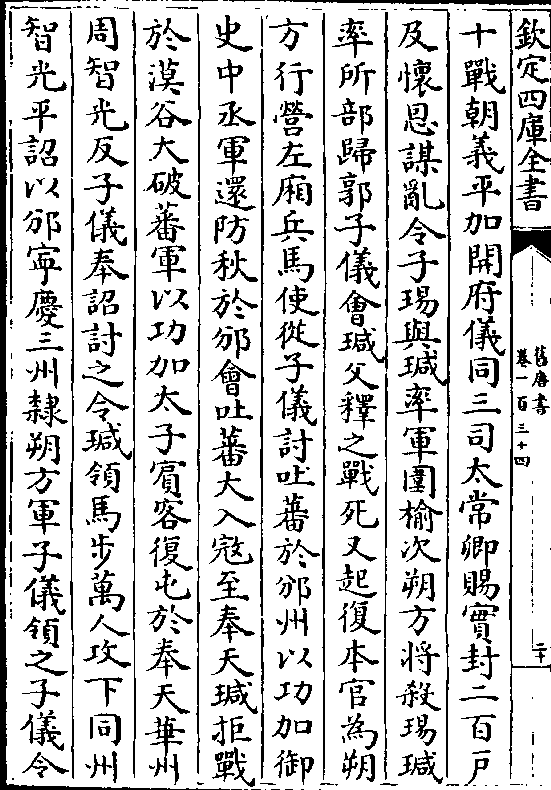 欽定四庫全書
舊唐書
卷一百三十四
二十
十戰朝義平加開府儀同三司太常卿賜實封二百戸
及懷恩謀亂令子瑒與瑊率軍圍榆次朔方將殺瑒瑊
率所部歸郭子儀會瑊父釋之戰死又起復本官為朔
方行營左廂兵馬使從子儀討吐蕃於邠州以功加御
史中丞軍還防秋於邠會吐蕃大入宼至奉天瑊拒戰
於漠谷大破蕃軍以功加太子賓客復屯於奉天華州
周智光反子儀奉詔討之令瑊領馬步萬人攻下同州
智光平詔以邠寧慶三州隸朔方軍子儀領之子儀令